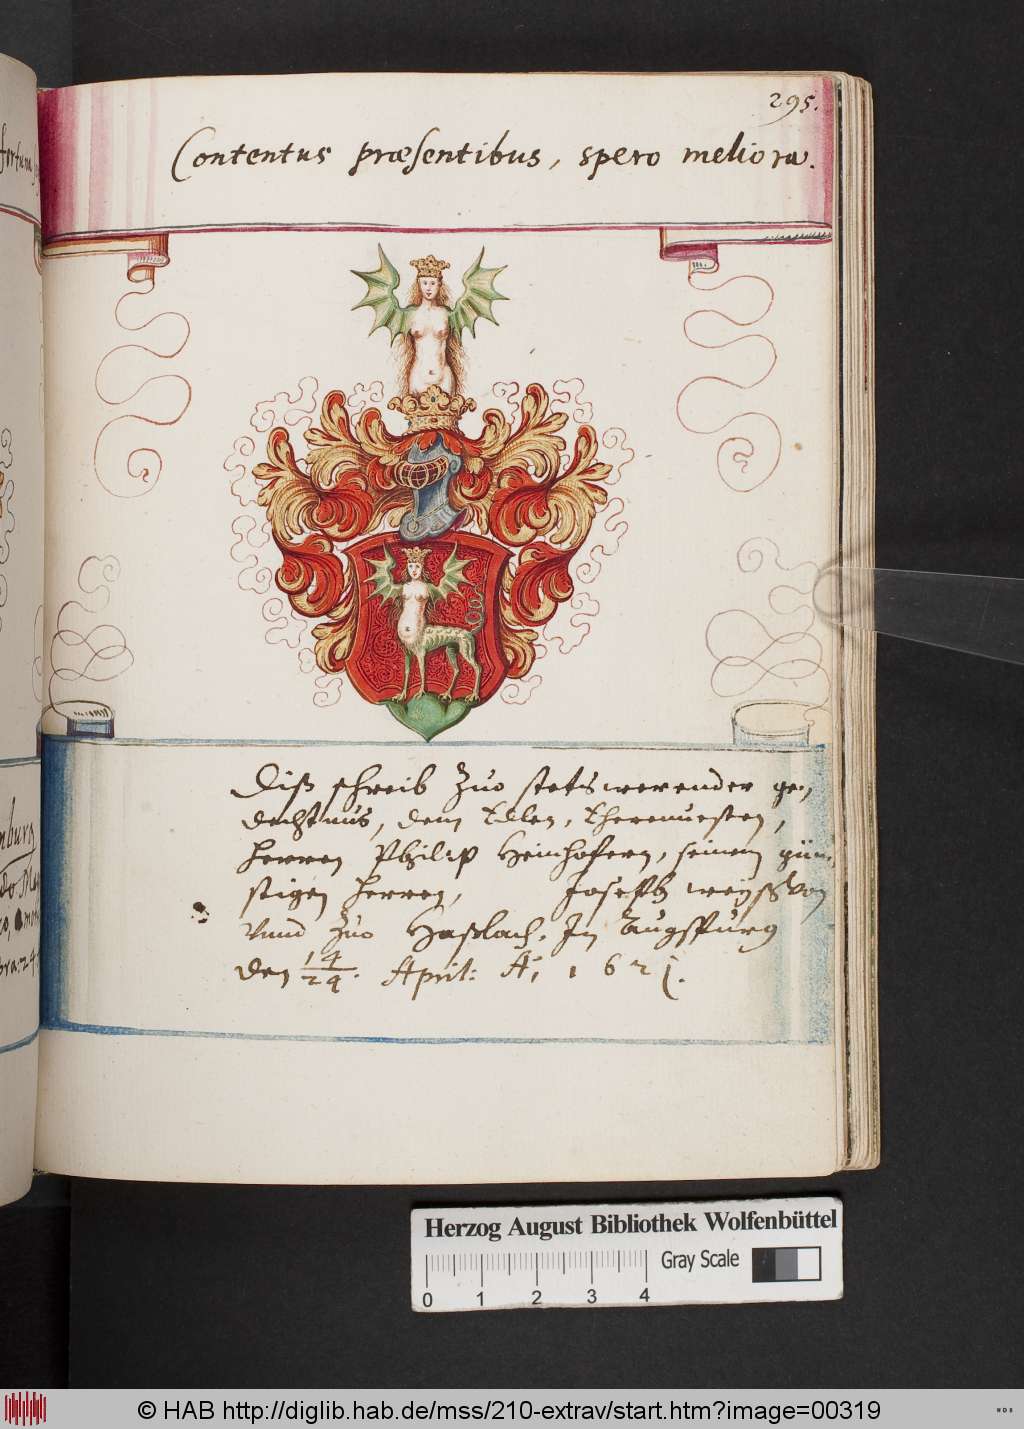 295.
Contentus præsentibus, spero meliora.
Diß schreib Zuo stets werender ge,,
dechtnus, dem Edlen, Ehrnuesten,
Herren Philip Heinhofern, seinem gün,,
stigen Herren, Joseph weyß von
Vnnd Zuo Haslach. In Augspurg
den 14/24. April: A°, 1621.
fortuna
nburg
Herzog August Bibliothek Wolfenbüttel
Gray Scale
0 1 2 3 4
© HAB http://diglib.hab.de/mss/210-extrav/start.htm?image=00319